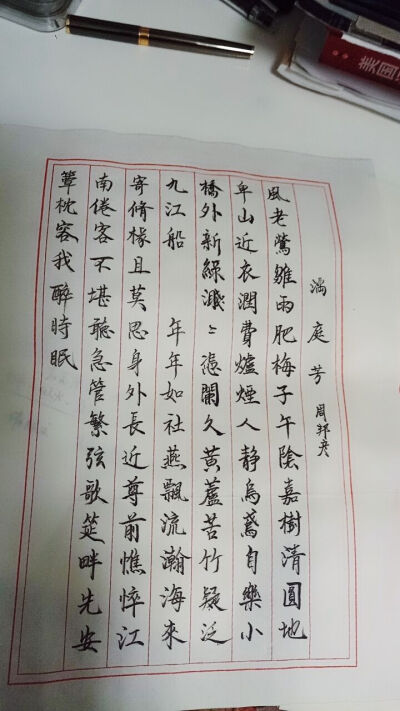 滿庭芳 周邦彥
風老鶯雛雨肥梅子午陰嘉樹清圓地
卑山近衣潤費爐煙人靜烏鳶自樂小
橋外新綠濺〻憑闌久黃蘆苦竹疑泛
九江船 年年如社燕飄流瀚海來
寄脩椽且莫思身外長近尊前憔悴江
南倦客不堪聽急管繁弦歌筵畔先安
簟枕容我醉時眠
美国